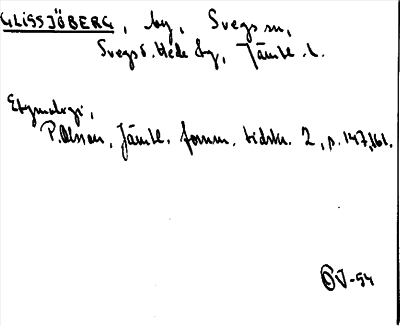 GLISSJÖBERG, by, Svegs sn,
Svegs o. Hede tg, Jämtl. l.
Etymologi,
P. Olsson, Jämtl. fornm. tidskr. 2, s. 147, 161.
OJ-54